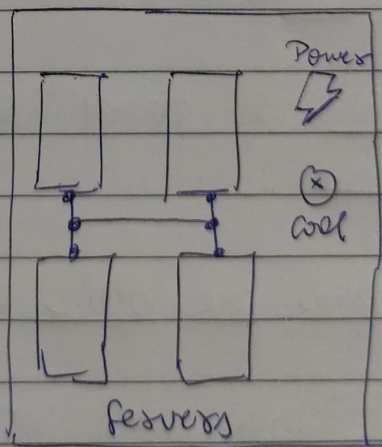 Power
cool
Servers